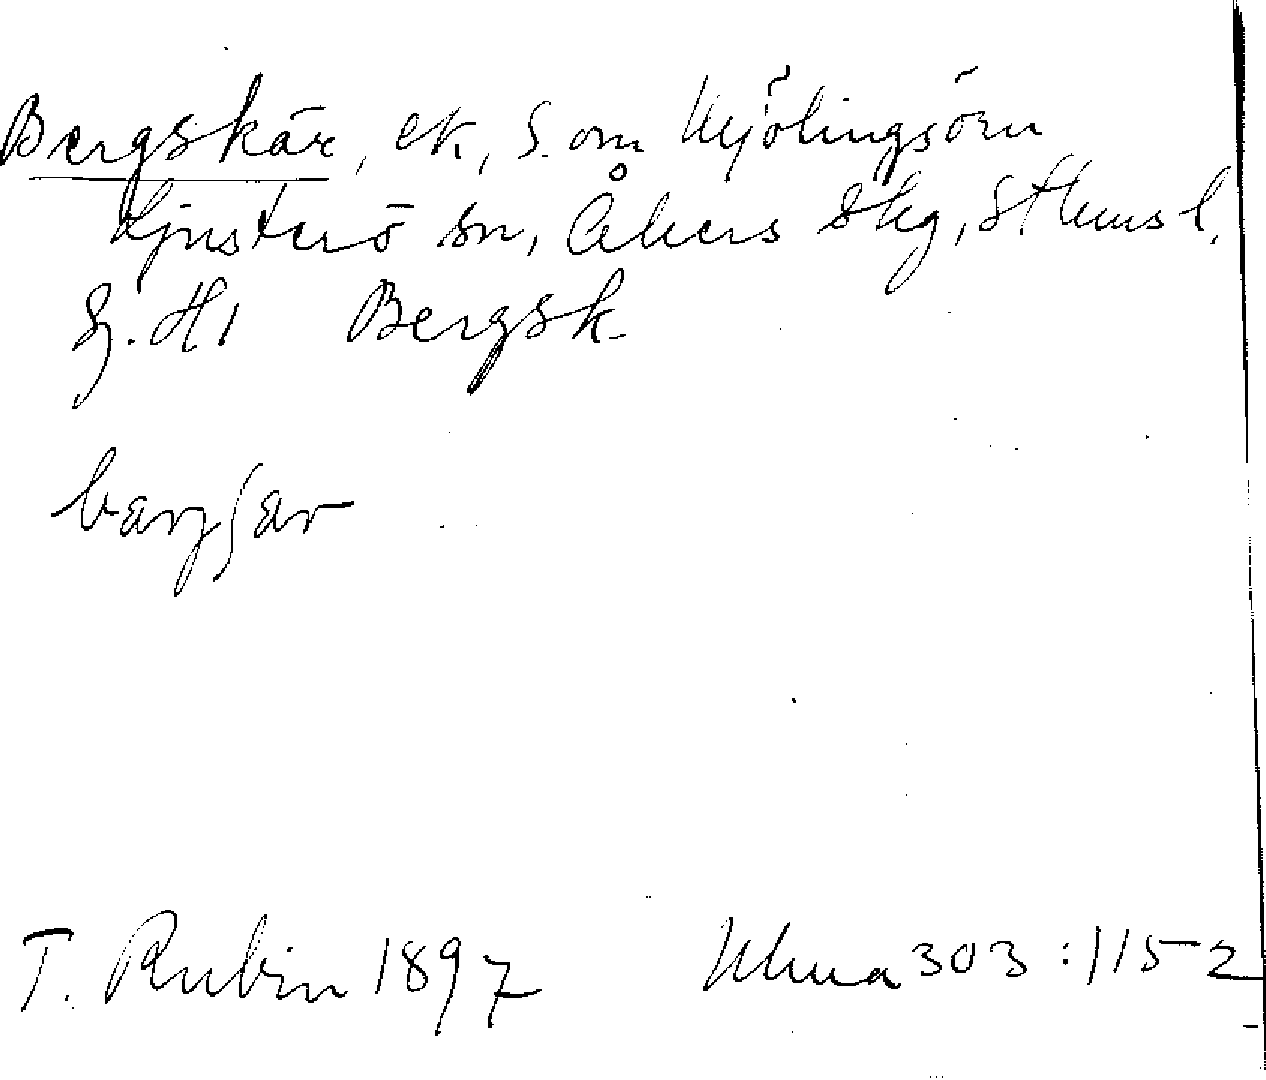 Bergskär, ek, S. om Mjölingsörn
Ljusterö sn, Åkers skg, Sthms l.
Bergsk.
T. Rubin 1897 Ulma 303:1152